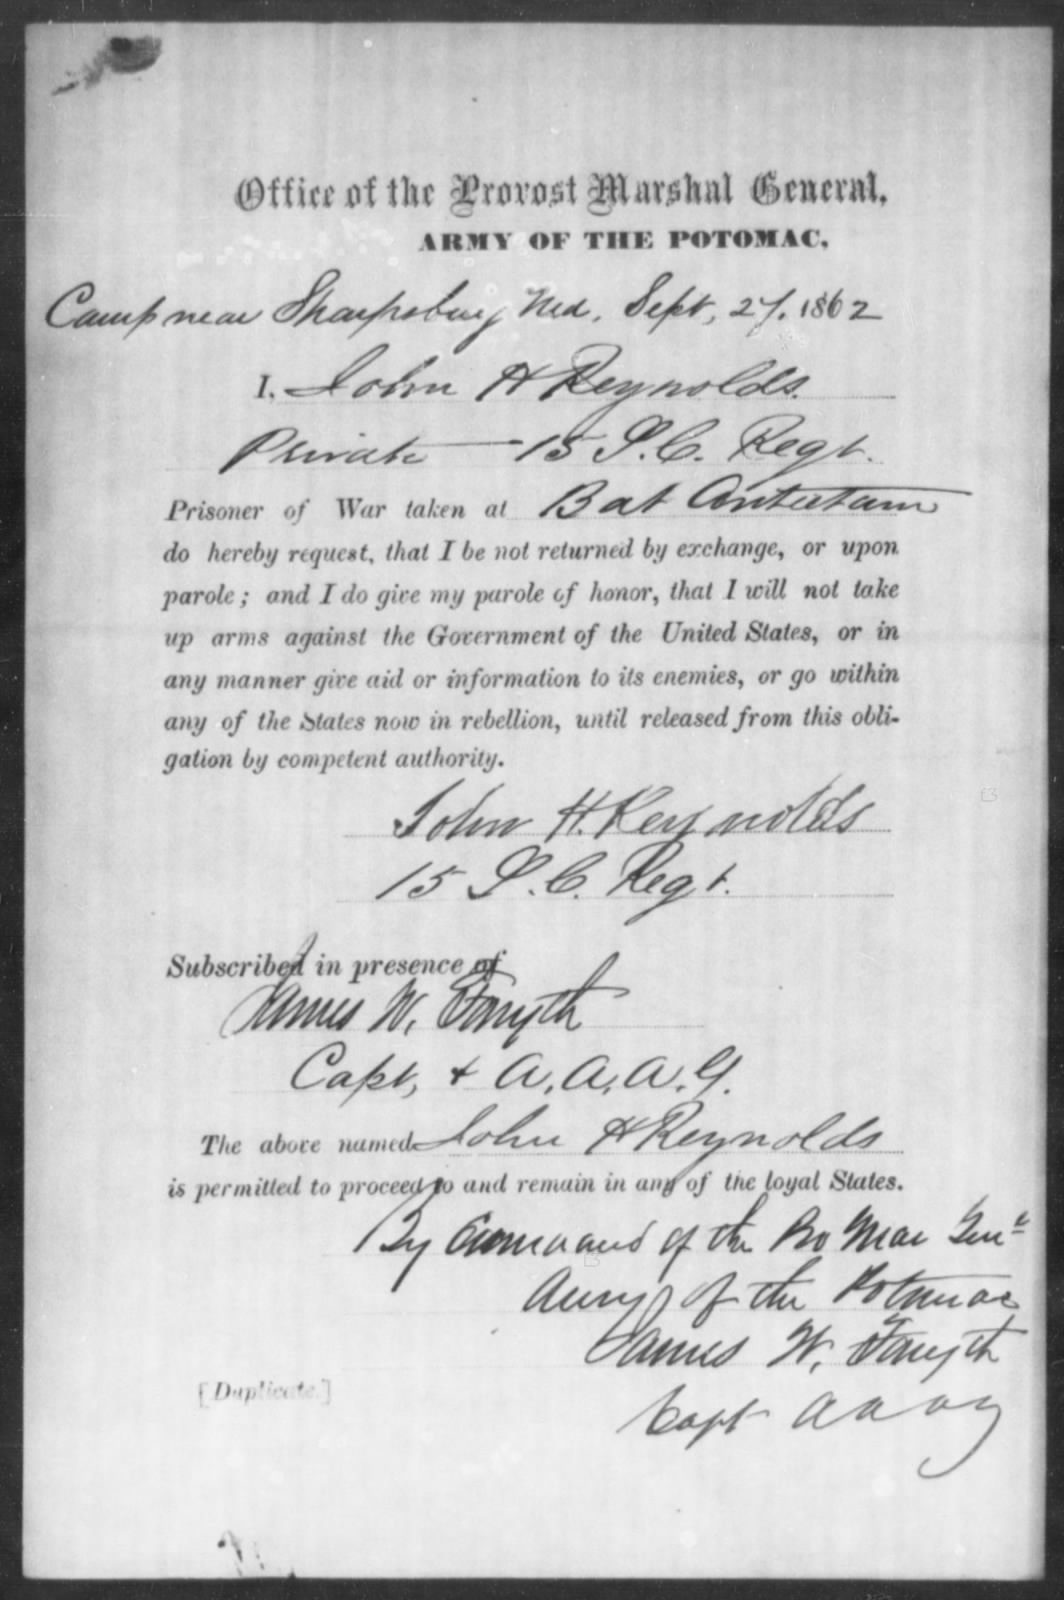 Office of the Provost Marshal General,
ARMY OF THE POTOMAC,
Camp near Sharpsburg Md, Sept, 27, 1862
I, John H Reynolds
Private — 15 S.C. Regt.
Prisoner of War taken at Bat Antietam
do hereby request, that I be not returned by exchange, or upon
parole; and I do give my parole of honor, that I will not take
up arms against the Government of the United States, or in
any manner give aid or information to its enemies, or go within
any of the States now in rebellion, until released from this obli-
gation by competent authority.
John H. Reynolds
15 S.C. Regt.
Subscribed in presence of
James W. Forsyth
Capt, & A, A, A, G.
The above named John H Reynolds
is permitted to proceed to and remain in any of the loyal States.
By Command of the Pro Mar Genl
Army of the Potomac
James W. Forsyth
Capt A A A G
[Duplicate.]